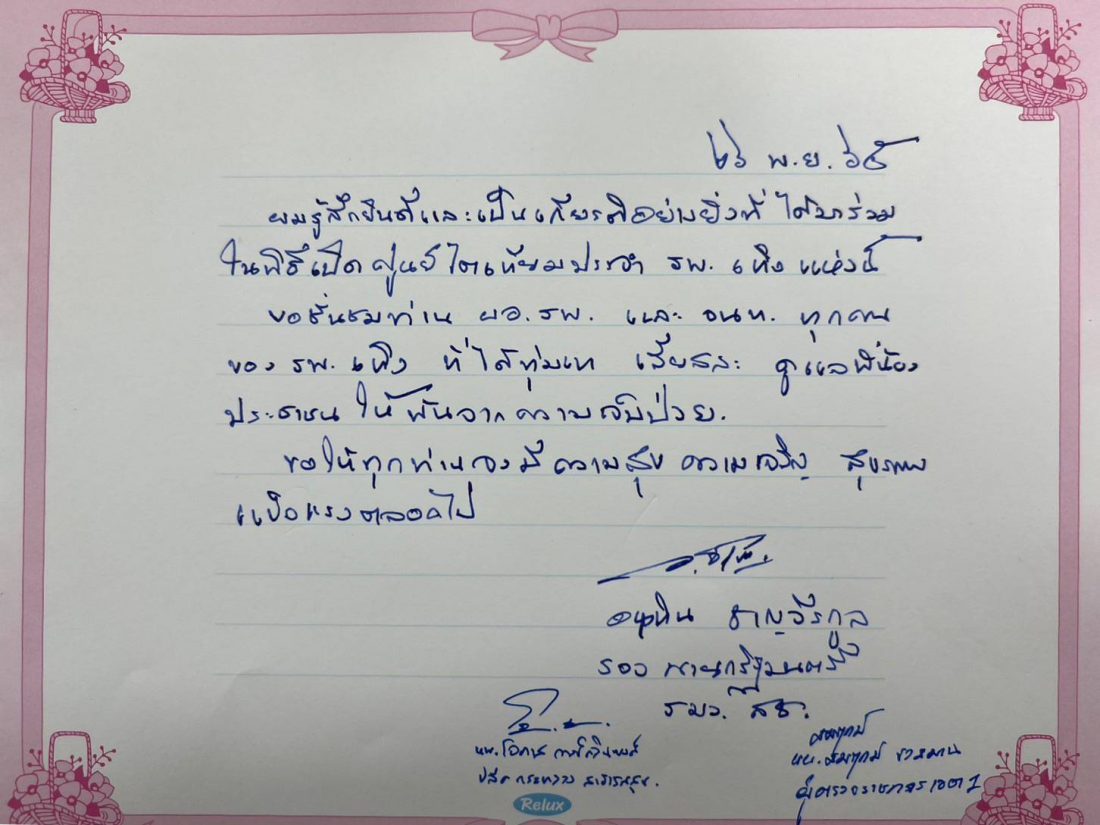 ๒๖ พ.ย. ๖๕
ผมรู้สึกยินดีและเป็นเกียรติอย่างยิ่งที่ ได้มาร่วม
ในพิธีเปิด ศูนย์ ไตเทียมประจำ รพ. เทิง แห่งนี้
ขอชื่นชมท่าน ผอ. รพ. และ จนท. ทุกคน
ของ รพ. เทิง ที่ ได้ทุ่มเท เสียสละ ดูแลพี่น้อง
ประชาชน ให้ พ้นจากความเจ็บป่วย.
ขอให้ทุกท่านจงมีความสุข ความเจริญ สุขภาพ
แข็งแรงตลอดไป
อนุทิน ชาญวีรกูล
รองนายกรัฐมนตรี
รมว. สธ.
นพ. โอภาส การย์กวินพงศ์
ปลัดกระทรวง สาธารณสุข.
ผู้ตรวจราชการเขต 1
Relux